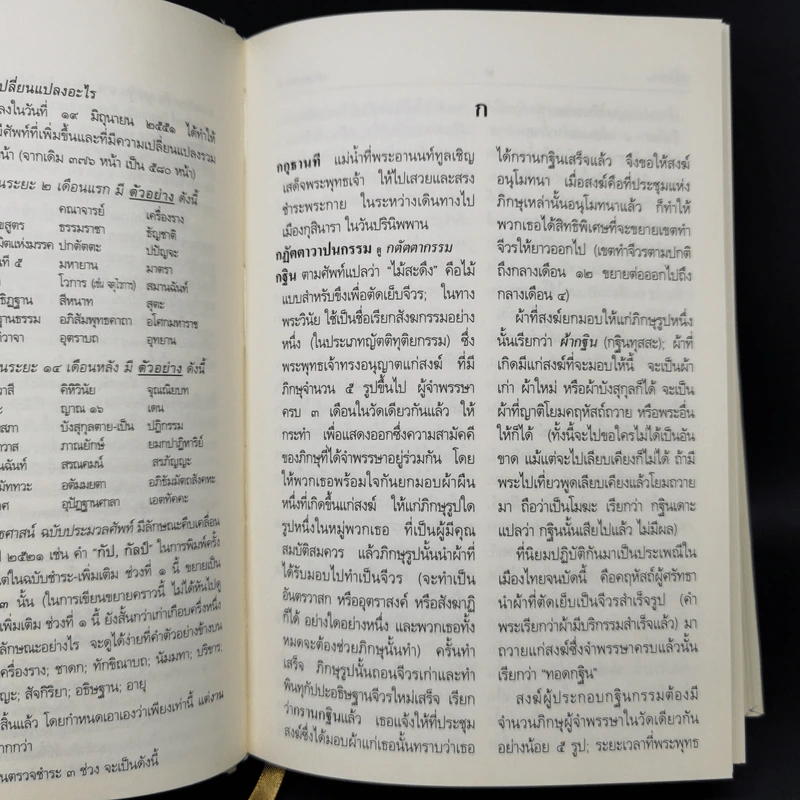 ปลี่ยนแปลงอะไร
ลงในวันที่ ๑๙ มิถุนายน ๒๕๕๑ ได้ทำให้
มีศัพท์ที่เพิ่มขึ้นและที่มีความเปลี่ยนแปลงรวม
หน้า (จากเดิม ๓๗๖ หน้า เป็น ๕๘๐ หน้า)
นระยะ ๒ เดือนแรก มี ตัวอย่าง ดังนี้
คณาจารย์ เครื่องราง
ขสูตร ธรรมราชา ธัญชาติ
มิตแห่งมรรค ปกตัตตะ ปปัญจะ
นที่ ๕ มหายาน มาตรา
โวการ (เช่น จตุโวการ) สมานฉันท์
ธิฏฐาน สีหนาท สุตะ
ฐานธรรม อภิสัมพุทธคาถา อโศกมหาราช
วาจา อุตราบถ อุทยาน
นระยะ ๑๔ เดือนหลัง มี ตัวอย่าง ดังนี้
วาสี คิหิวินัย จุณณิยบท
ะ ญาณ ๑๖ เดน
สภา บังสุกุลตาย-เป็น ปฏิกรรม
าวาส ภาณยักษ์ ยมกปาฏิหาริย์
นฉันท์ สรณคมน์ สรภัญญะ
มัททวะ อตัมมยตา อภิธัมมัตถสังคหะ
ทศ อุปัฏฐานศาลา เอตทัคคะ
ธศาสน์ ฉบับประมวลศัพท์ มีลักษณะคืบเคลื่อน
ป ๒๕๒๑ เช่น คำ “กัป, กัลป์” ในการพิมพ์ครั้ง
ต่ในฉบับชำระ-เพิ่มเติม ช่วงที่ ๑ นี้ ขยายเป็น
๓ นั้น (ในการเขียนขยายคราวนี้ ไม่ได้หันไปดู
เพิ่มเติม ช่วงที่ ๑ นี้ ยังสั้นกว่าเก่าเกือบครึ่งหนึ่ง
ลักษณะอย่างไร จะดูได้ง่ายที่คำตัวอย่างข้างบน
ครื่องราง; ชาดก; ทักขิณาบถ; นัมมทา; บริขาร;
ญะ; สัจกิริยา; อธิษฐาน; อายุ
สิ้นแล้ว โดยกำหนดเอาเองว่าเพียงเท่านี้ แต่งาน
ากกว่า
นตรวจชำระ ๓ ช่วง จะเป็นดังนี้
ก
กกุธานที แม่น้ำที่พระอานนท์ทูลเชิญ
เสด็จพระพุทธเจ้า ให้ไปเสวยและสรง
ชำระพระกาย ในระหว่างเดินทางไป
เมืองกุสินารา ในวันปรินิพพาน
กฏัตตาวาปนกรรม ดู กตัตตากรรม
กฐิน ตามศัพท์แปลว่า “ไม้สะดึง” คือไม้
แบบสำหรับขึงเพื่อตัดเย็บจีวร; ในทาง
พระวินัย ใช้เป็นชื่อเรียกสังฆกรรมอย่าง
หนึ่ง (ในประเภทญัตติทุติยกรรม) ซึ่ง
พระพุทธเจ้าทรงอนุญาตแก่สงฆ์ ที่มี
ภิกษุจำนวน ๕ รูปขึ้นไป ผู้จำพรรษา
ครบ ๓ เดือนในวัดเดียวกันแล้ว ให้
กระทำ เพื่อแสดงออกซึ่งความสามัคคี
ของภิกษุที่ได้จำพรรษาอยู่ร่วมกัน โดย
ให้พวกเธอพร้อมใจกันยกมอบผ้าผืน
หนึ่งที่เกิดขึ้นแก่สงฆ์ ให้แก่ภิกษุรูปใด
รูปหนึ่งในหมู่พวกเธอ ที่เป็นผู้มีคุณ
สมบัติสมควร แล้วภิกษุรูปนั้นนำผ้าที่
ได้รับมอบไปทำเป็นจีวร (จะทำเป็น
อันตรวาสก หรืออุตราสงค์ หรือสังฆาฏิ
ก็ได้ อย่างใดอย่างหนึ่ง และพวกเธอทั้ง
หมดจะต้องช่วยภิกษุนั้นทำ) ครั้นทำ
เสร็จ ภิกษุรูปนั้นถอนจีวรเก่าและทำ
พินทุกัปปะอธิษฐานจีวรใหม่เสร็จ เรียก
ว่ากรานกฐินแล้ว เธอแจ้งให้ที่ประชุม
สงฆ์ซึ่งได้มอบผ้าแก่เธอนั้นทราบว่าเธอ
ได้กรานกฐินเสร็จแล้ว จึงขอให้สงฆ์
อนุโมทนา เมื่อสงฆ์คือที่ประชุมแห่ง
ภิกษุเหล่านั้นอนุโมทนาแล้ว ก็ทำให้
พวกเธอได้สิทธิพิเศษที่จะขยายเขตทำ
จีวรให้ยาวออกไป (เขตทำจีวรตามปกติ
ถึงกลางเดือน ๑๒ ขยายต่อออกไปถึง
กลางเดือน ๔)
ผ้าที่สงฆ์ยกมอบให้แก่ภิกษุรูปหนึ่ง
นั้นเรียกว่า ผ้ากฐิน (กฐินทุสสะ); ผ้าที่
เกิดมีแก่สงฆ์ที่จะมอบให้นี้ จะเป็นผ้า
เก่า ผ้าใหม่ หรือผ้าบังสุกุลก็ได้ จะเป็น
ผ้าที่ญาติโยมคฤหัสถ์ถวาย หรือพระอื่น
ให้ก็ได้ (ทั้งนี้จะไปขอใครไม่ได้เป็นอัน
ขาด แม้แต่จะไปเลียบเคียงก็ไม่ได้ ถ้ามี
พระไปเที่ยวพูดเลียบเคียงแล้วโยมถวาย
มา ถือว่าเป็นโมฆะ เรียกว่า กฐินเดาะ
แปลว่า กฐินนั้นเสียไปแล้ว ไม่มีผล)
ที่นิยมปฏิบัติกันมาเป็นประเพณีใน
เมืองไทยจนบัดนี้ คือคฤหัสถ์ผู้ศรัทธา
นำผ้าที่ตัดเย็บเป็นจีวรสำเร็จรูป (คำ
พระเรียกว่าผ้ามีบริกรรมสำเร็จแล้ว) มา
ถวายแก่สงฆ์ซึ่งจำพรรษาครบแล้วนั้น
เรียกว่า “ทอดกฐิน”
สงฆ์ผู้ประกอบกฐินกรรมต้องมี
จำนวนภิกษุผู้จำพรรษาในวัดเดียวกัน
อย่างน้อย ๕ รูป; ระยะเวลาที่พระพุทธ